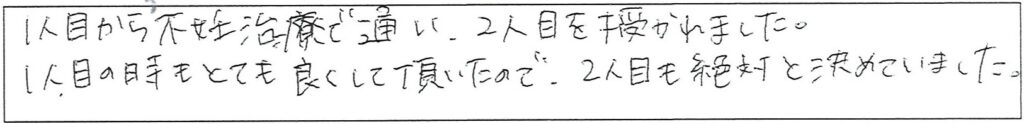 1人目から不妊治療で通い、2人目を授かれました。
1人目の時もとても良くして頂いたので、2人目も絶対と決めていました。